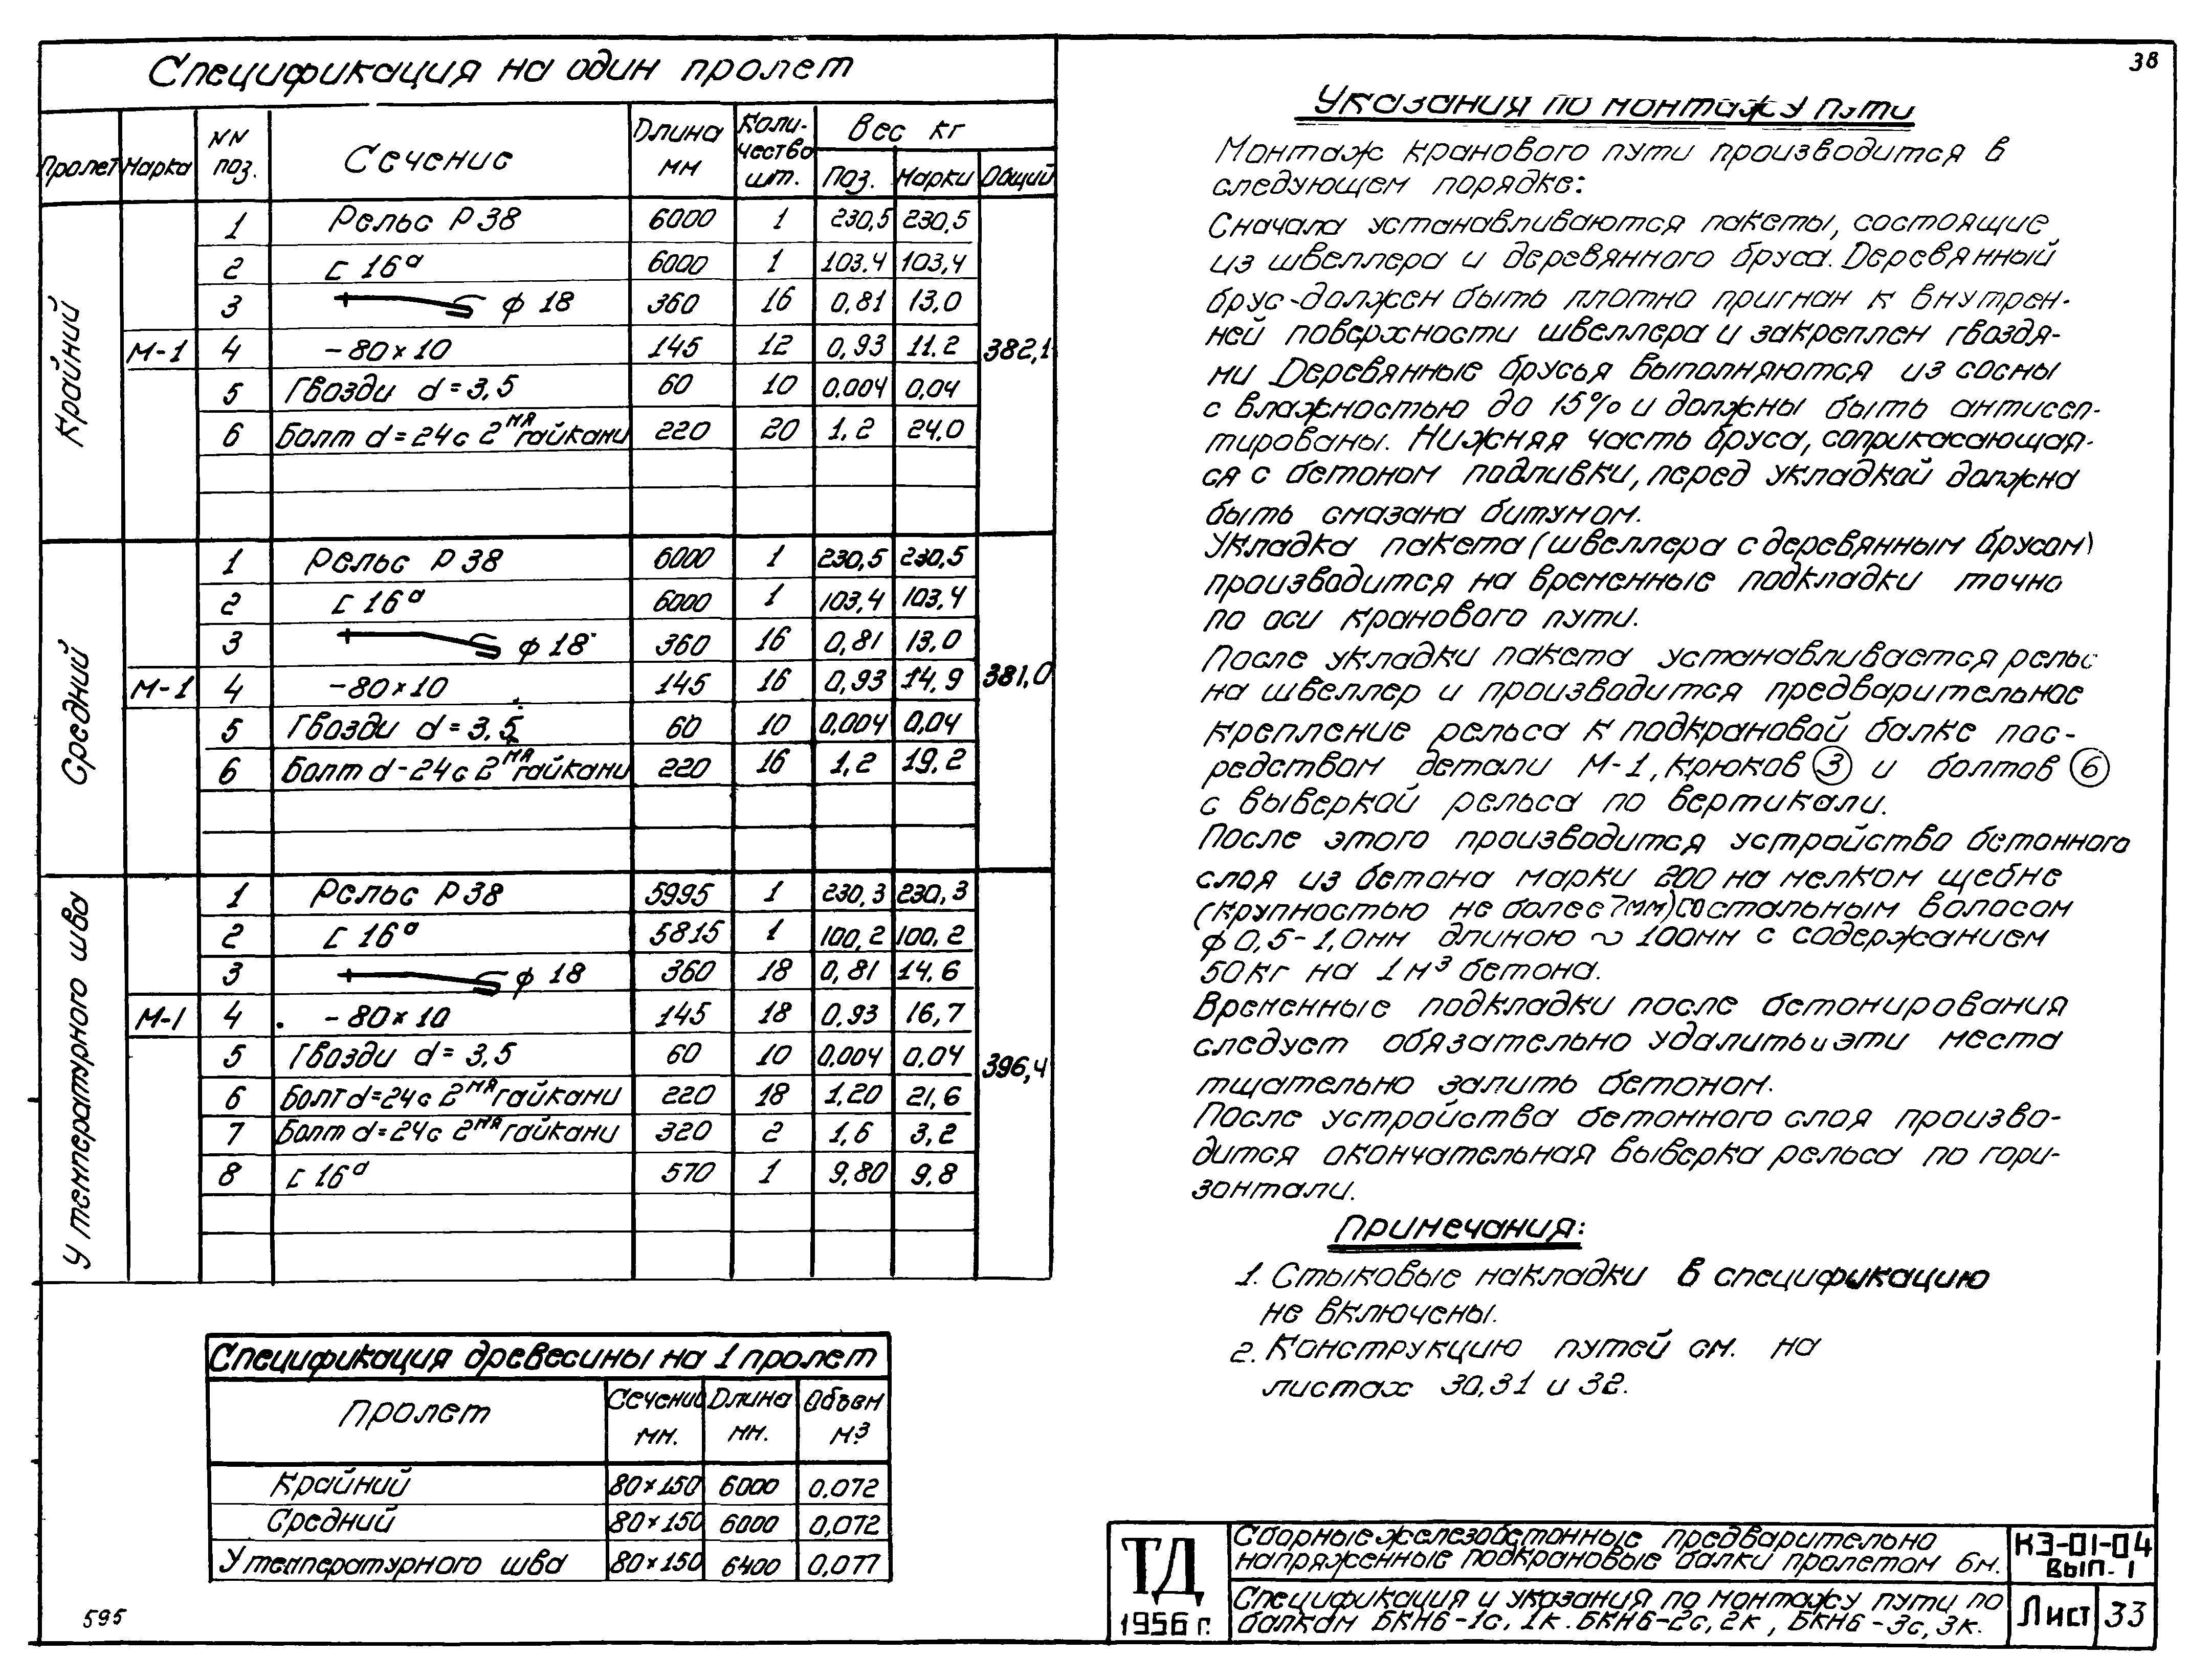 38
Спецификация на один пролет
Пролет Марка NN поз. Сечение Длина мм Коли-чество шт. Вес кг
Поз. Марки Общий
Крайний М-1 382,1
1 Рельс Р38 6000 1 230,5 230,5
2 [ 16а 6000 1 103.4 103,4
3 ф 18 360 16 0,81 13,0
4 -80×10 145 12 0,93 11.2
5 Гвозди d=3,5 60 10 0.004 0,04
6 Болт d=24 с 2мя гайками 220 20 1,2 24.0
Средний М-1 381,0
1 Рельс Р38 6000 1 230,5 230,5
2 [ 16а 6000 1 103,4 103,4
3 ф 18 360 16 0,81 13,0
4 -80×10 145 16 0,93 14,9
5 Гвозди d=3,5 60 10 0,004 0,04
6 Болт d-24 с 2мя гайками 220 16 1,2 19,2
У температурного шва М-1 396,4
1 Рельс Р38 5995 1 230,3 230,3
2 [ 16а 5815 1 100,2 100,2
3 ф 18 360 18 0,81 14.6
4 -80×10 145 18 0.93 16,7
5 Гвозди d=3,5 60 10 0,004 0,04
6 Болт d=24 с 2мя гайками 220 18 1,20 21,6
7 Болт d=24 с 2мя гайками 320 2 1,6 3,2
8 [ 16а 570 1 9,80 9,8
Спецификация древесины на 1 пролет
Пролет Сечение мм. Длина мм. Объем м3
Крайний 80×150 6000 0.072
Средний 80×150 6000 0,072
У температурного шва 80×150 6400 0,077
595
Указания по монтажу пути
Монтаж кранового пути производится в
следующем порядке:
Сначала устанавливаются пакеты, состоящие
из швеллера и деревянного бруса. Деревянный
брус-должен быть плотно пригнан к внутрен-
ней поверхности швеллера и закреплен гвоздя-
ми Деревянные брусья выполняются из сосны
с влажностью до 15% и должны быть антисеп-
тированы. Нижняя часть бруса, соприкасающая-
ся с бетоном подливки, перед укладкой должна
быть смазана битумом.
Укладка пакета (швеллера с деревянным брусом)
производится на временные подкладки точно
по оси кранового пути.
После укладки пакета устанавливается рельс
на швеллер и производится предварительное
крепление рельса к подкрановой балке пос-
редством детали М-1, крюков 3 и болтов 6
с выверкой рельса по вертикали.
После этого производится устройство бетонного
слоя из бетона марки 200 на мелком щебне
(крупностью не более 7мм) со стальным волосом
ф 0,5-1,0мм длиною ~ 100мм с содержанием
50кг на 1 м3 бетона.
Временные подкладки после бетонирования
следует обязательно удалить и эти места
тщательно залить бетоном.
После устройства бетонного слоя произво-
дится окончательная выверка рельса по гори-
зонтали.
Примечания:
1. Стыковые накладки в спецификацию
не включены.
2. Конструкцию путей см. на
листах 30,31 и 32.
ТД
1956 г.
Сборные железобетонные предварительно
напряженные подкрановые балки пролетом 6м.
КЭ-01-04
вып. 1
Спецификация и указания по монтажу пути по
балкам БКН6-1с, 1к. БКН6-2с, 2к, БКН6-3с, 3к.
Лист 33